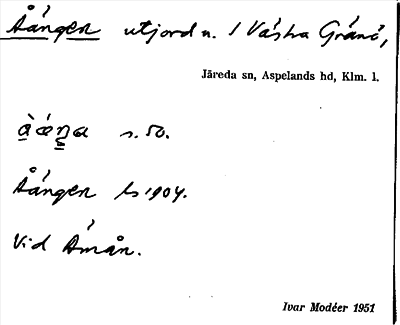 Åången utjord u. 1 Västra Gränö,
Järeda sn, Aspelands hd, Klm. l.
s. 50.
Åången ls 1904.
Vid Åmån.
Ivar Modéer 1951